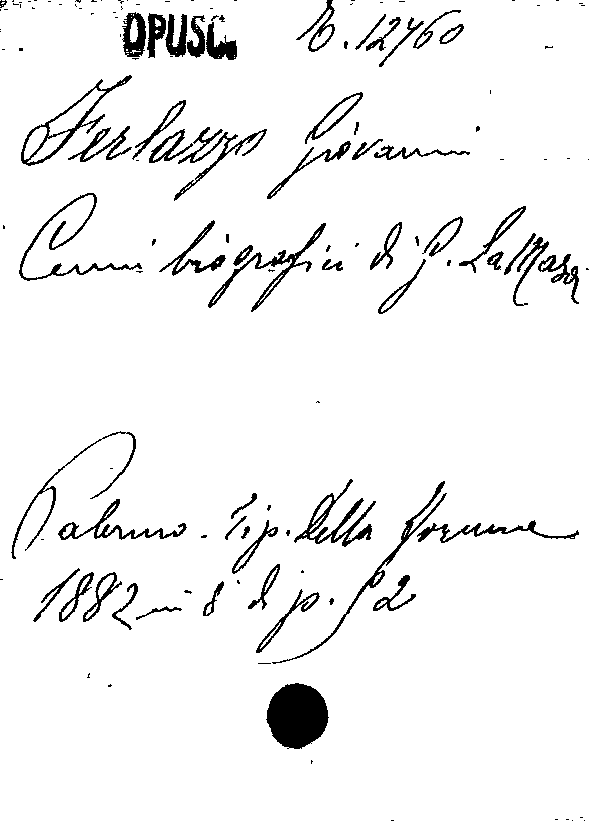 OPUSC. E. 12760
Ferlazzo Giovanni
Cenni biografici di G. La Masa
Palermo - Tip. Della Forense
1882 in 8° di p. 52